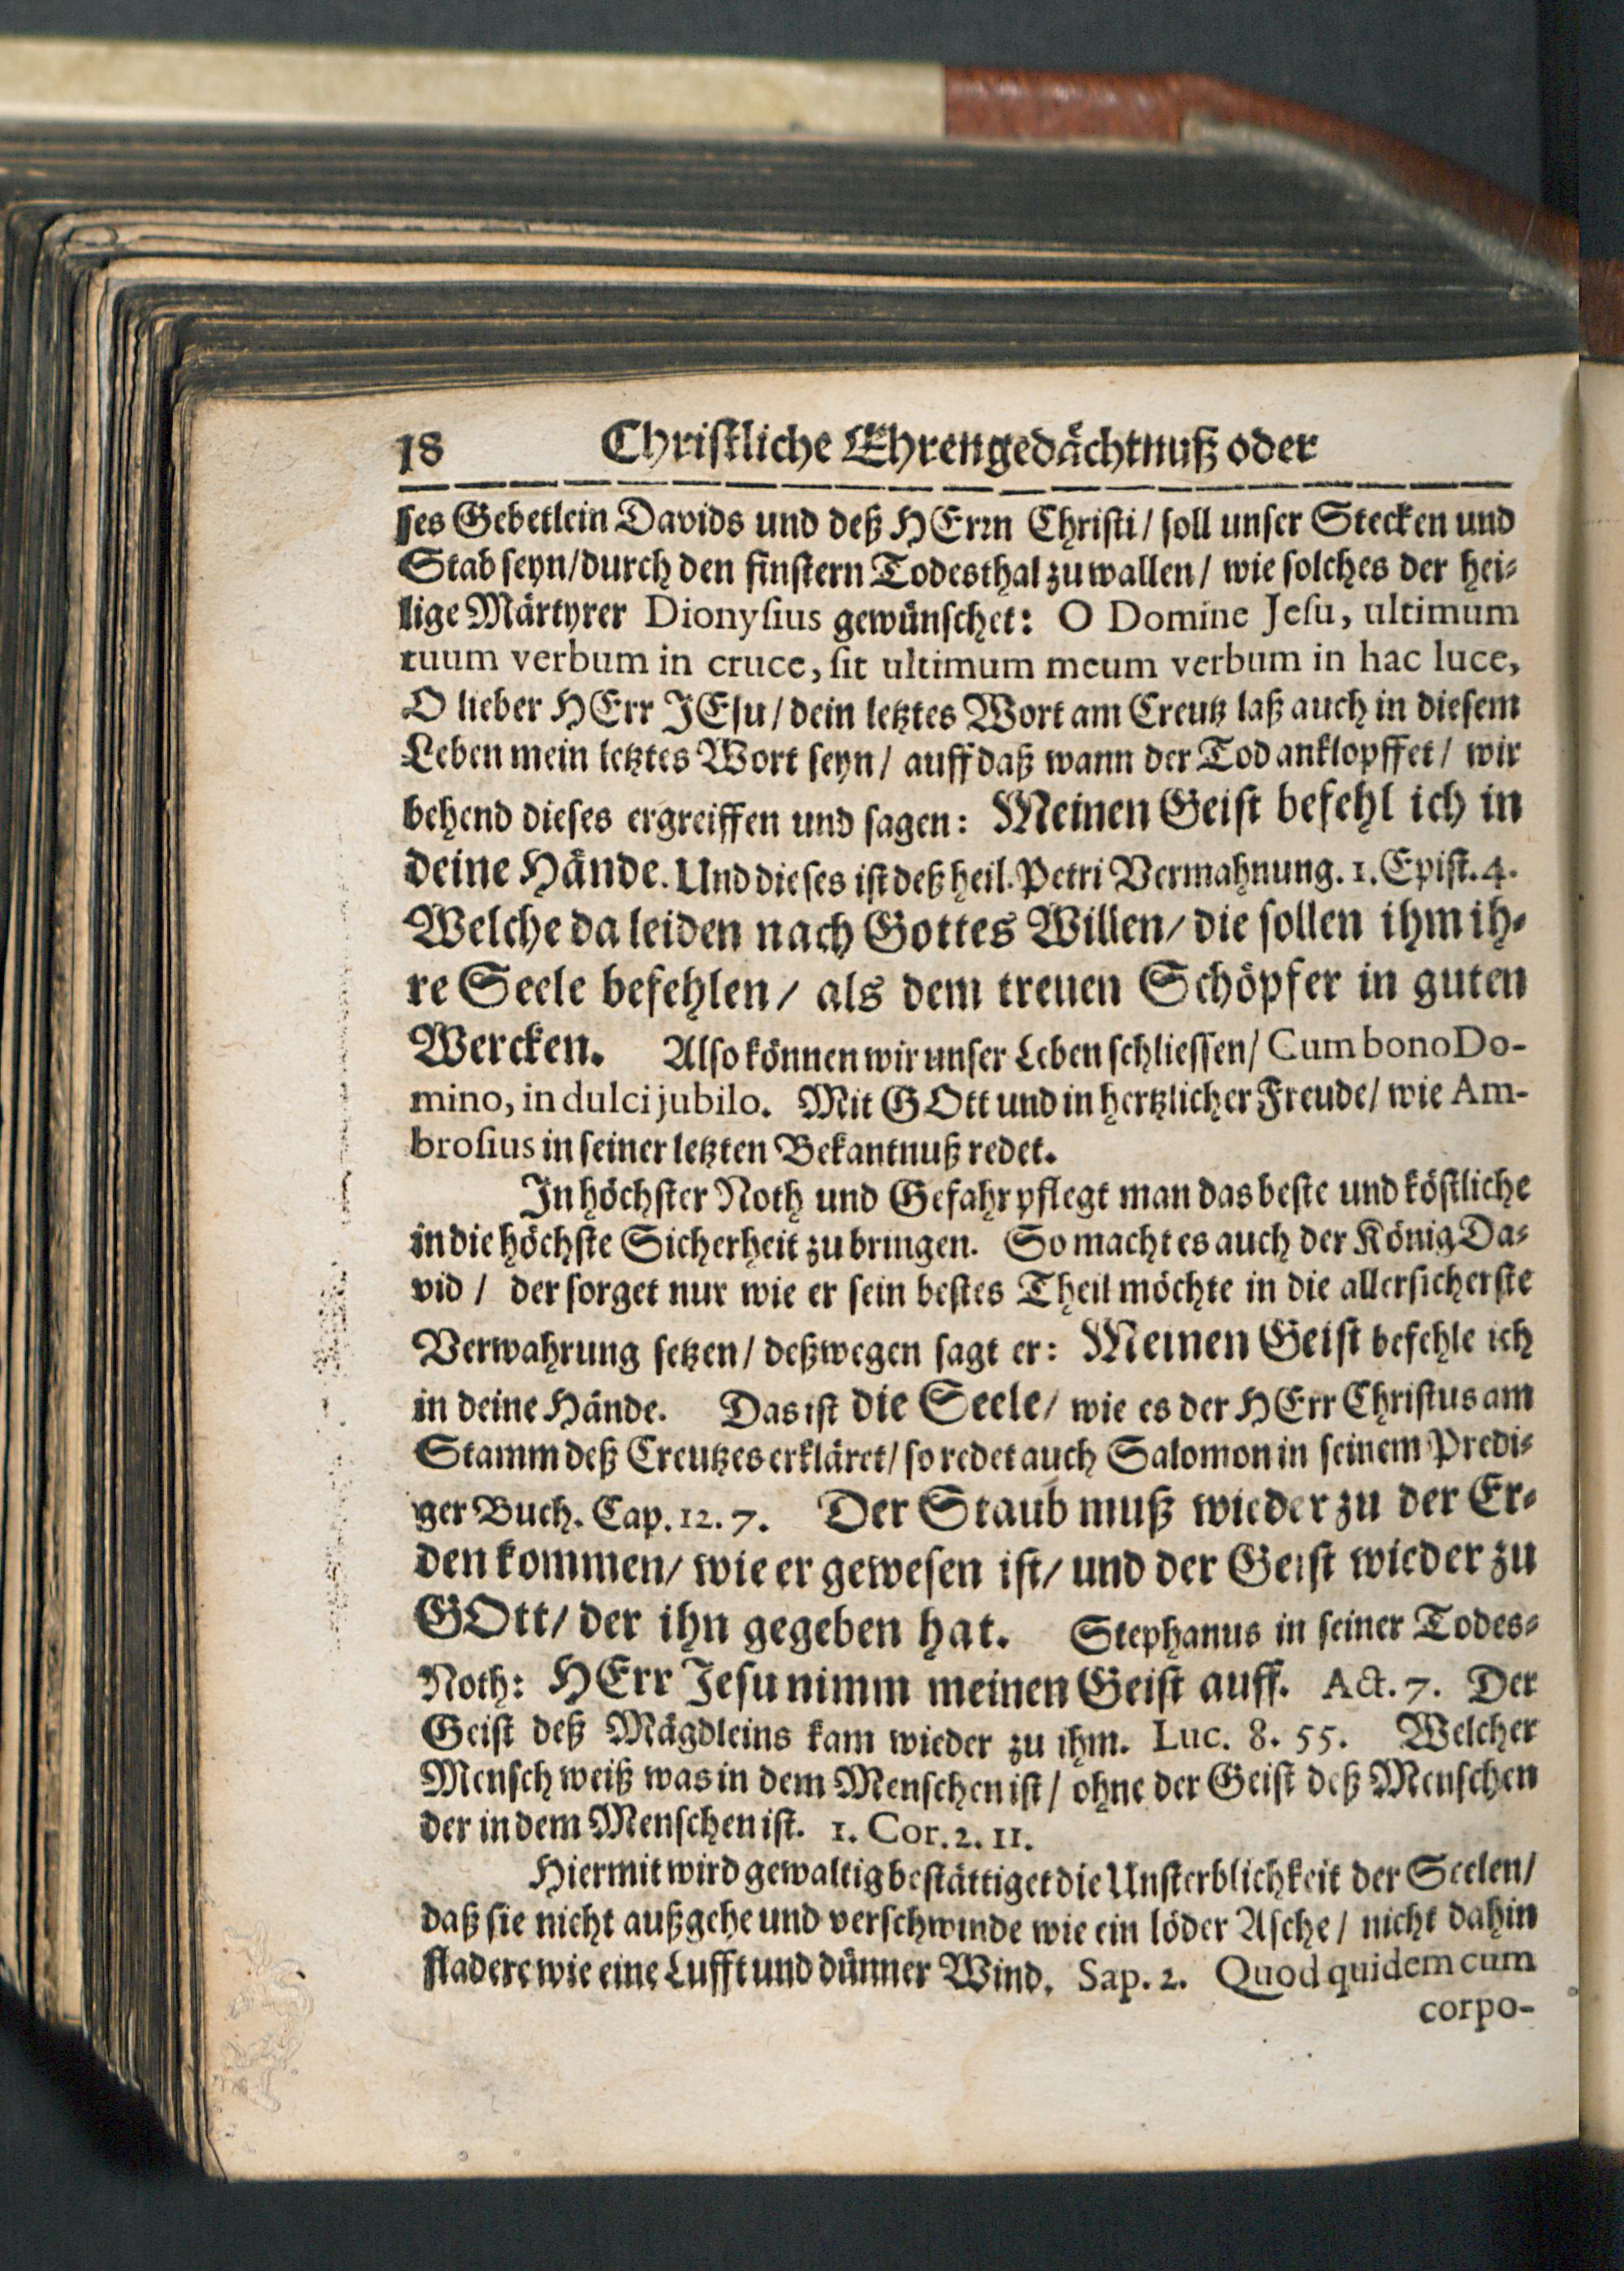 18 Christliche Ehrengedächtnuß oder
ses Gebetlein Davids und deß HErrn Christi / soll unser Stecken und
Stab seyn / durch den finstern Todesthal zu wallen / wie solches der hei-
lige Märtyrer Dionysius gewünschet: O Domine Jesu, ultimum
tuum verbum in cruce, sit ultimum meum verbum in hac luce,
O lieber HErr JEsu / dein letztes Wort am Creutz laß auch in diesem
Leben mein letztes Wort seyn / auff daß wann der Tod anklopffet / wir
behend dieses ergreiffen und sagen: Meinen Geist befehl ich in
deine Hände. Und dieses ist deß heil. Petri Vermahnung. 1. Epist. 4.
Welche da leiden nach Gottes Willen / die sollen ihm ih-
re Seele befehlen / als dem treuen Schöpfer in guten
Wercken. Also können wir unser Leben schliessen / Cum bono Do-
mino, in dulci jubilo. Mit GOtt und in hertzlicher Freude / wie Am-
brosius in seiner letzten Bekantnuß redet.
In höchster Noth und Gefahr pflegt man das beste und köstliche
in die höchste Sicherheit zu bringen. So macht es auch der König Da-
vid / der sorget nur wie er sein bestes Theil möchte in die allersicherste
Verwahrung setzen / deßwegen sagt er: Meinen Geist befehle ich
in deine Hände. Das ist die Seele / wie es der HErr Christus am
Stamm deß Creutzes erkläret / so redet auch Salomon in seinem Predi-
ger Buch. Cap. 12. 7. Der Staub muß wieder zu der Er-
den kommen / wie er gewesen ist / und der Geist wieder zu
GOtt / der ihn gegeben hat. Stephanus in seiner Todes-
Noth: HErr Jesu nimm meinen Geist auff. Act. 7. Der
Geist deß Mägdleins kam wieder zu ihm. Luc. 8. 55. Welcher
Mensch weiß was in dem Menschen ist / ohne der Geist deß Menschen
der in dem Menschen ist. 1. Cor. 2. 11.
Hiermit wird gewaltig bestättiget die Unsterblichkeit der Seelen /
daß sie nicht außgehe und verschwinde wie ein löder Asche / nicht dahin
fladere wie eine Lufft und dünner Wind. Sap. 2. Quod quidem cum
corpo-